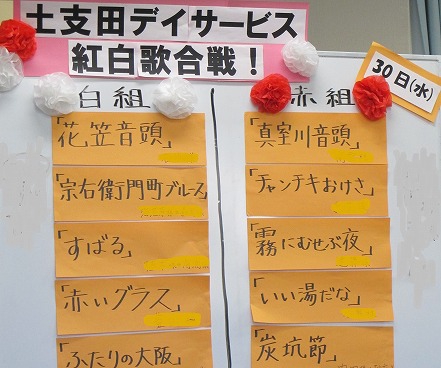 土支田デイサービス
紅白歌合戦!
30日(水)
白組
赤組
花笠音頭」
宗右衛門町ブルース」
「すばる」
「赤いグラス」
「ふたりの大阪」
「真室川音頭」
「チャンチキおけさ」
「霧にむせぶ夜」
「いい湯だな」
「炭坑節」